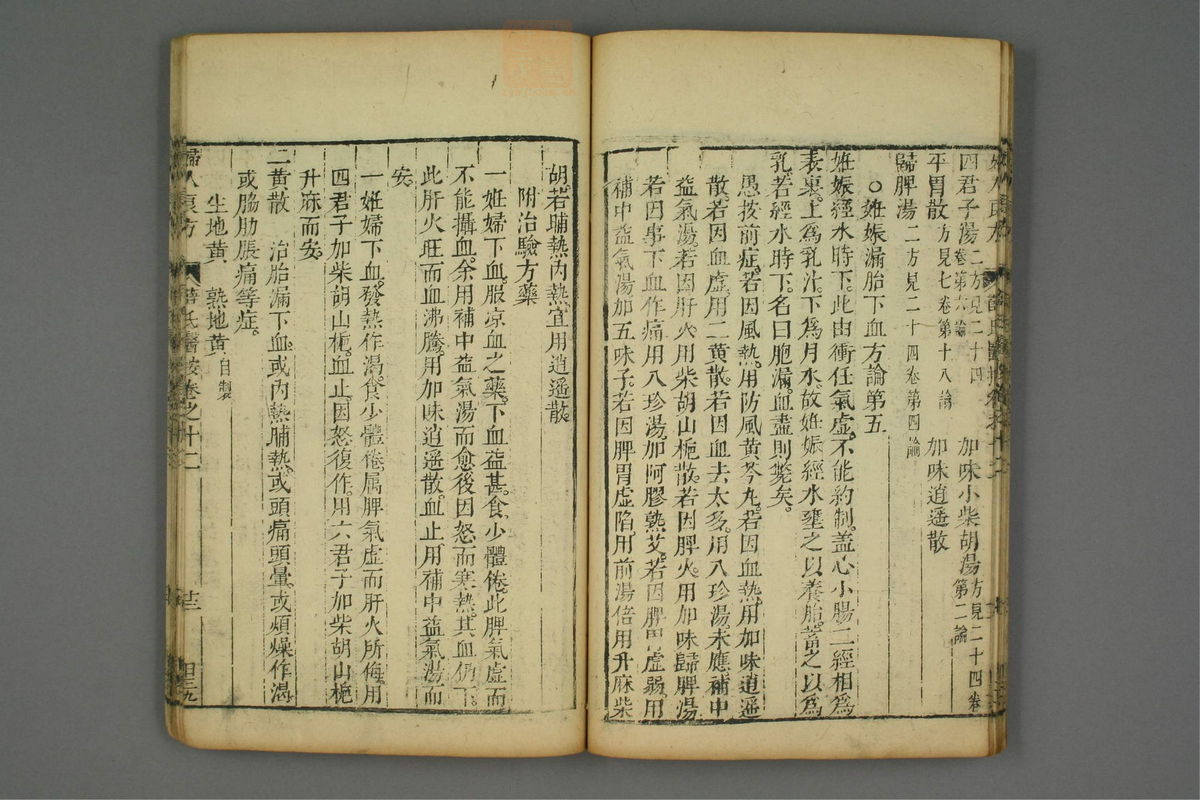 四君子湯二方見二十四卷第六論　加味小柴胡湯方見二十四卷第二論
平胃散方見七卷第十八論　加味逍遥散
歸脾湯二方見二十四卷第四論
○妊娠漏胎下血方論第五
妊娠經水時下。此由衝任氣虚。不能約制。盖心小腸二經相為
表裏。上為乳汁。下為月水。故妊娠經水壅之以養胎。蓄之以為
乳。若經水時下。名曰胞漏。血盡則斃矣。
愚按前症。若因風熱。用防風黄芩丸。若因血熱。用加味逍遥
散。若因血虚。用二黄散。若因血去太多。用八珍湯。未應補中
益氣湯。若因肝火用柴胡山梔散。若因脾火。用加味歸脾湯
若因事下血作痛用八珍湯。加阿膠熟艾。若因脾胃虚弱。用
補中益氣湯加五味子。若因脾胃虚陷。用前湯倍用升麻柴
胡。若晡熱内熱。宜用逍遥散。
附治驗方藥
一妊婦下血。服凉血之藥。下血益甚。食少體倦。此脾氣虚而
不能攝血。余用補中益氣湯而愈後因怒而寒熱。其血仍下。
此肝火旺而血沸騰。用加味逍遥散血止用補中益氣湯而
安。
一妊婦下血。發熱作渴。食少體倦。属脾氣虚而肝火所侮。用
四君子加柴胡山梔。血止。因怒復作。用六君子加柴胡山梔
升麻而安。
二黄散　治胎漏下血。或内熱晡熱。或頭痛頭暈。或煩燥作渴。
或脇肋脹痛等症。
生地黄　熟地黄自製
婦人良方　薛氏醫按卷之十二